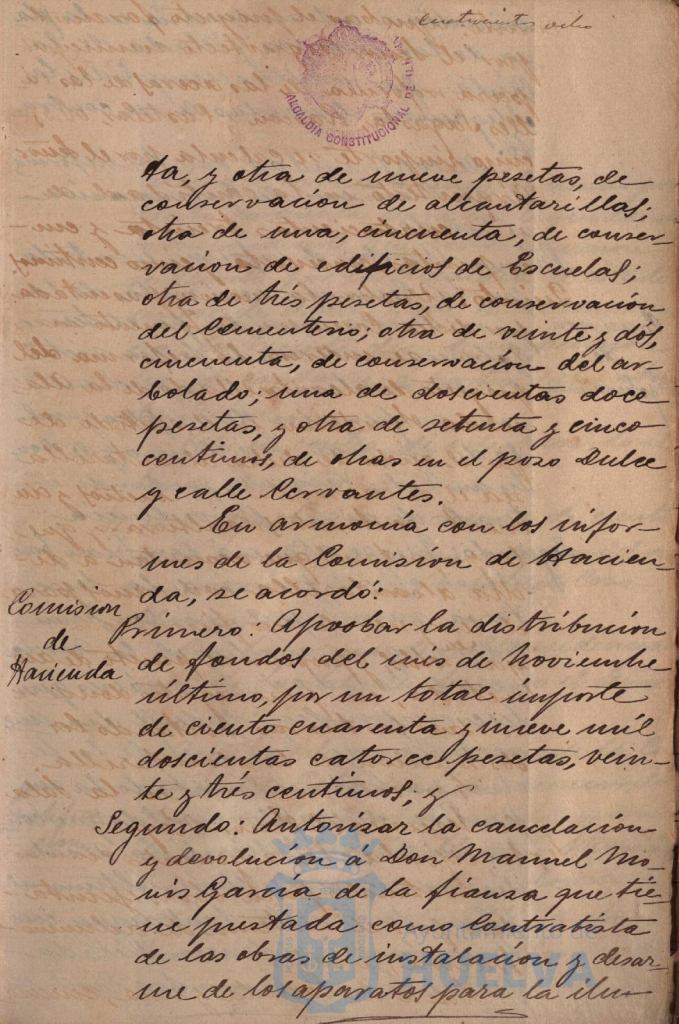 cuatrocientos ocho
ALCALDIA CONSTITUCIONAL DE HUELVA
ta, y otra de nueve pesetas, de
conservación de alcantarillas;
otra de una, cincuenta, de conser-
vación de edificios de Escuelas;
otra de trés pesetas, de conservación
del Cementerio; otra de veinte y dós,
cincuenta, de conservación del ar-
bolado; una de doscientas doce
pesetas, y otra de setenta y cinco
centimos, de obras en el pozo Dulce
y calle Cervantes.
En armonía con los infor-
mes de la Comisión de Hacien-
da, se acordó:
Comision
de
Hacienda
Primero: Aprobar la distribución
de fondos del mes de Noviembre
último, por un total importe
de ciento cuarenta y nueve mil
doscientas catorce pesetas, vein-
te y trés centimos; y
Segundo: Autorizar la cancelación
y devolución á Don Manuel Mo-
nis García de la fianza que tie-
ne prestada como Contratista
de las obras de instalación y desar-
me de los aparatos para la ilu-
HUELVA